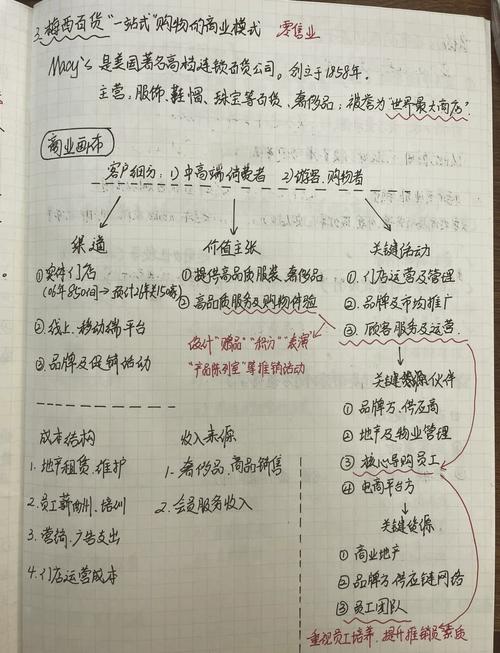 3.梅西百货"一站式"购物的商业模式 零售业
Macy's 是美国著名高档连锁百货公司。创立于1858年。
主营:服饰、鞋帽、珠宝等百货、奢侈品;被誉为"世界最大商店".
商业画布
客户细分:1)中高端消费者 2)游客、购物者
渠道
①实体门店
(06年850间→预计2
②线上、移动端平台
③品牌及促销活动
价值主张
①提供高品质服装、奢侈品
②高品质服务及购物体验
设计"赠品""积分""表演"
"产品陈列室"等推销活动
关键活动
①门店运营及管理
②品牌及市场推广
③顾客服务及运营.
关键资源伙伴
①品牌方、供应商
②地产及物业管理
③核心导购员工
④电商平台方
关键资源
①商业地产
②品牌方、供应链网络
③员工团队
重视员工培养,提升推销员素质
成本结构
1.地产租赁、维护
2.员工薪酬、培训
3.营销、广告支出
4.门店运营成本
收入来源
1.奢侈品、商品销售
2.会员服务收入